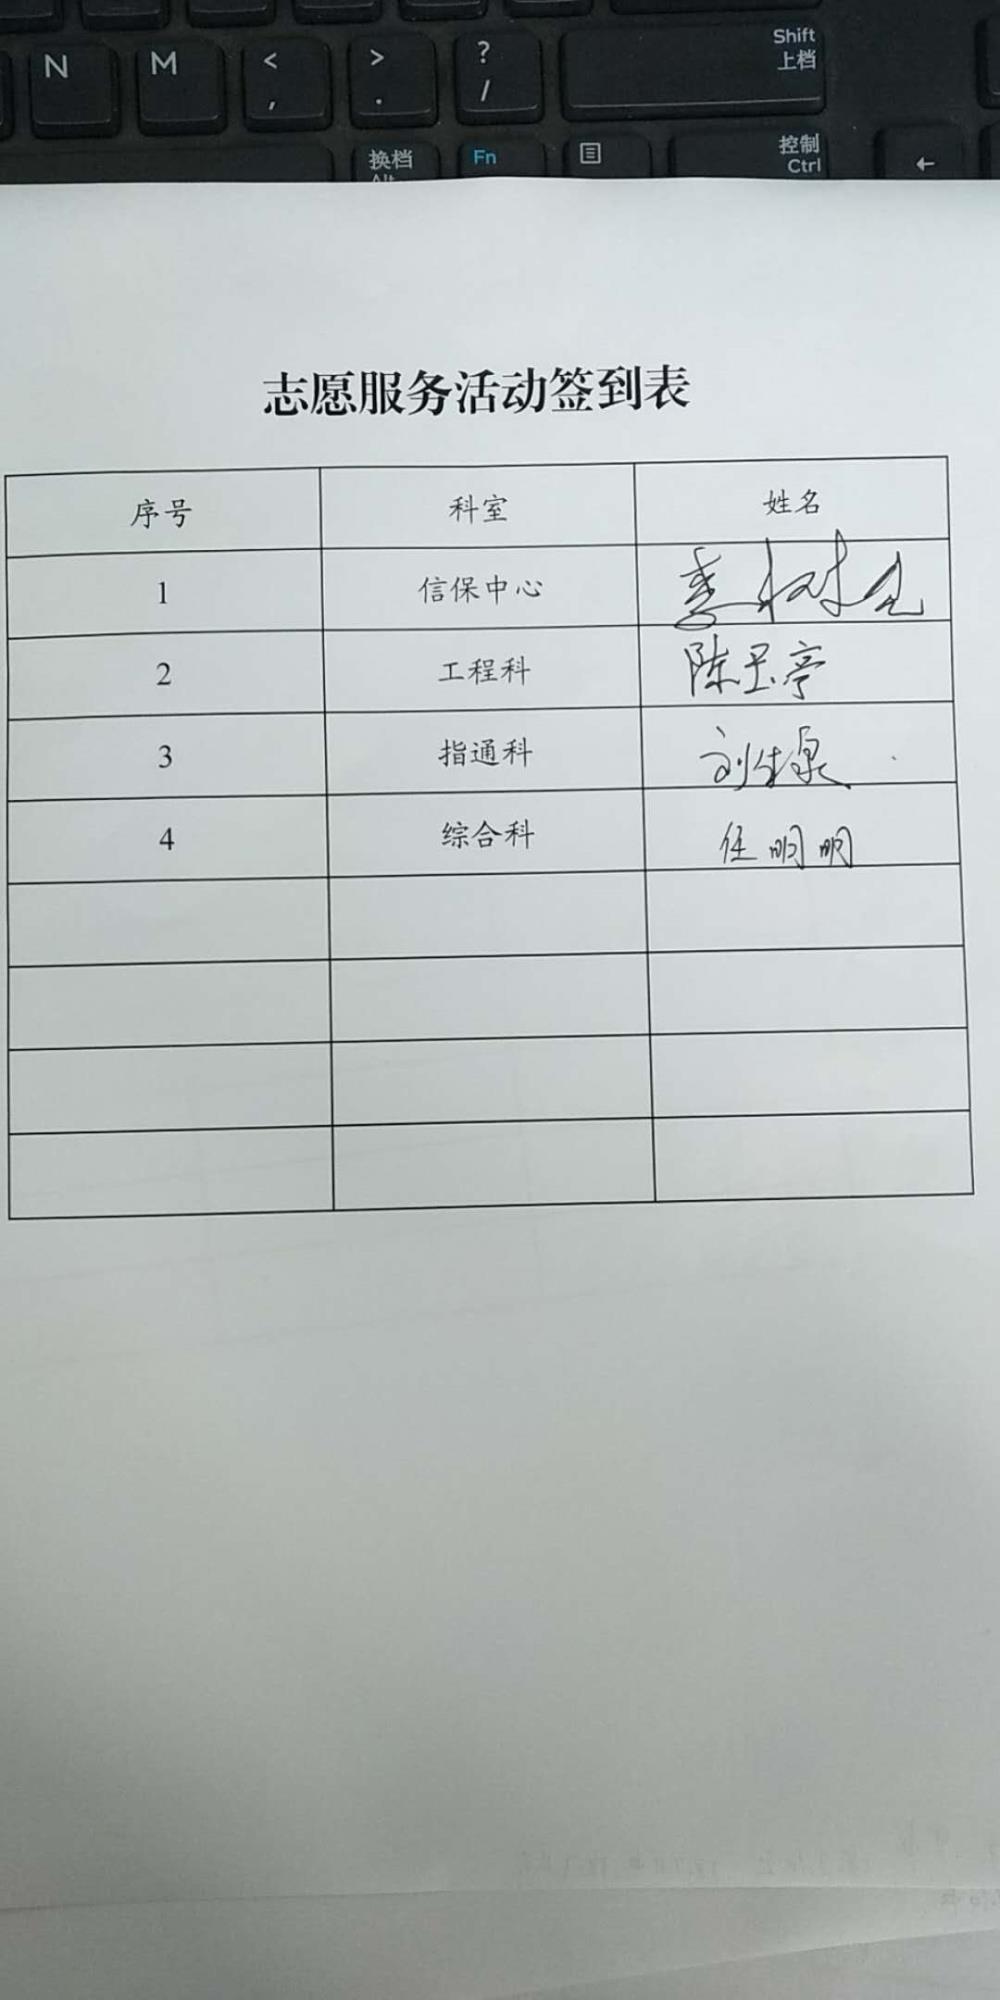 N M < , > . ? / Shift 上档
换档 Alt Fn 控制 Ctrl ←
志愿服务活动签到表
序号 科室 姓名
1 信保中心 李树全
2 工程科 陈玉亭
3 指通科 刘生泉
4 综合科 任明明